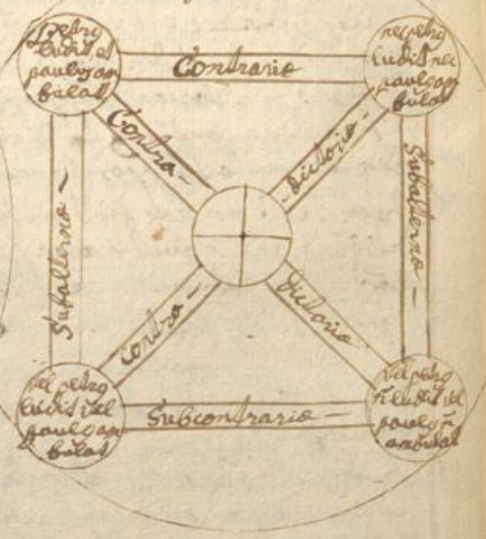 et petrg
ludit et
paulg am
bulat
Contrarie
nec petrg
ludit nec
paulg am
bulat
Contra-
-dictorie-
Subalterne-
Subalterne-
Contra-
dictorie
vel petrg
ludit vel
paulg am
bulat
Subcontrarie-
vel petrg
ñ ludit vel
paulg ñ
ambulat